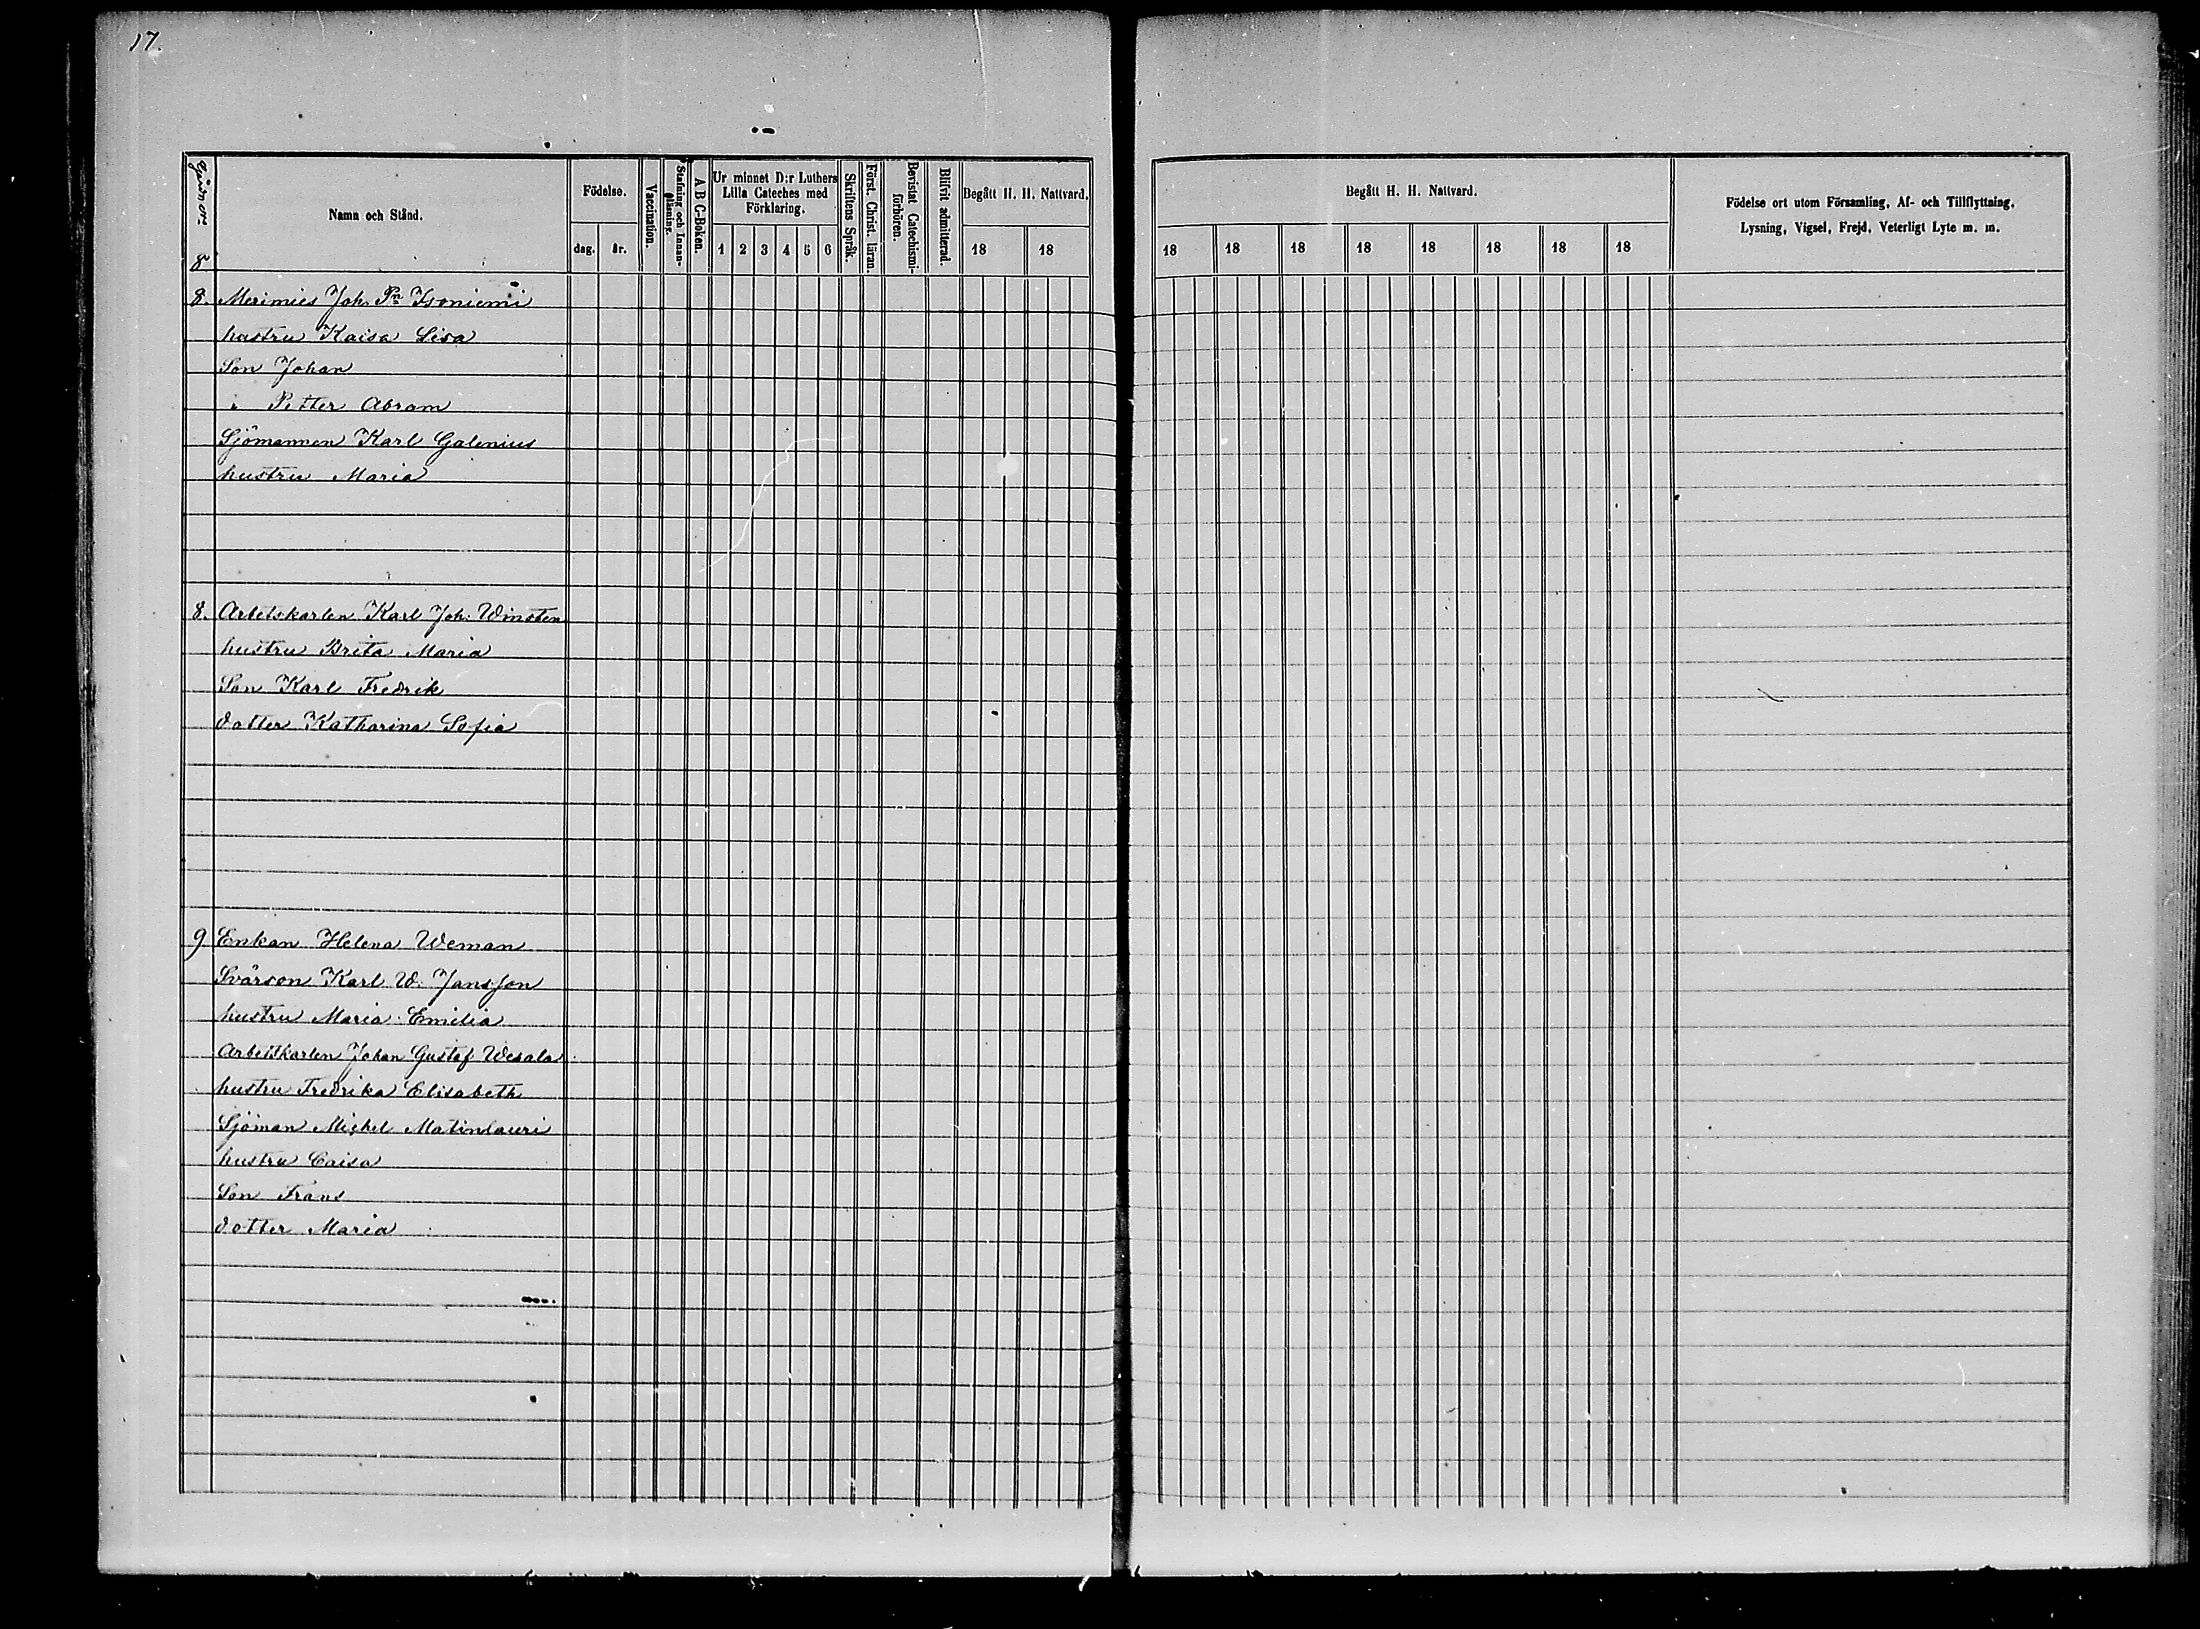 17.
Gård N:o
Namn och Stånd.
Födelse.
dag. år.
Vaccination.
Stafning och Innanläsning.
A B C-Boken.
Ur minnet D:r Luthers
Lilla Cateches med
Förklaring.
1 2 3 4 5 6
Skriftens Språk.
Först. Christ. läran.
Bevistat Catechismi-
förhören.
Blifvit admitterad.
Begått H. H. Nattvard.
18 18
Begått H. H. Nattvard.
18 18 18 18 18 18 18 18
Födelse ort utom Församling, Af- och Tillflyttning,
Lysning, Vigsel, Frejd, Veterligt Lyte m. m.
8
8. Merimies Joh. Pn Isoniemi
hustru Kaisa Lisa
Son Johan
" Petter Abram
Sjömannen Karl Galenius
hustru Maria
8. Arbetskarlen Karl Joh. Winsten
hustru Brita Maria
Son Karl Fredrik
dotter Katharina Sofia
9 Enkan Helena Weman
Svärson Karl W. Jansson
hustru Maria Emilia
Arbetskarlen Johan Gustaf Wesala
hustru Fredrika Elisabeth
Sjöman Michel Matinlauri
hustru Caisa
Son Frans
dotter Maria